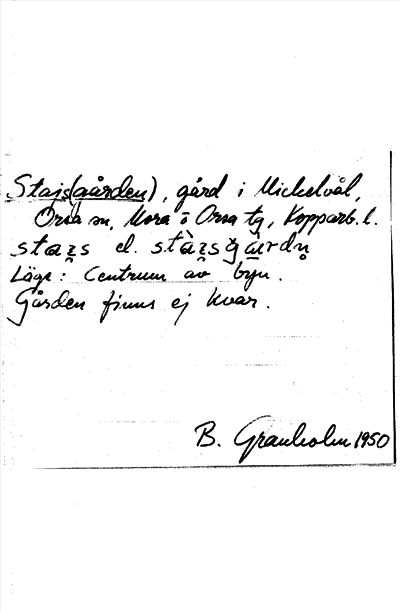 Stajs(gården), gård i Mickelvål,
Orsa sn, Mora o Orsa tg, Kopparb. l.
staɪ̯s el. stàɪ̯sgàrdn̥
Läge: Centrum av byn.
Gården finns ej kvar.
B. Granholm 1950